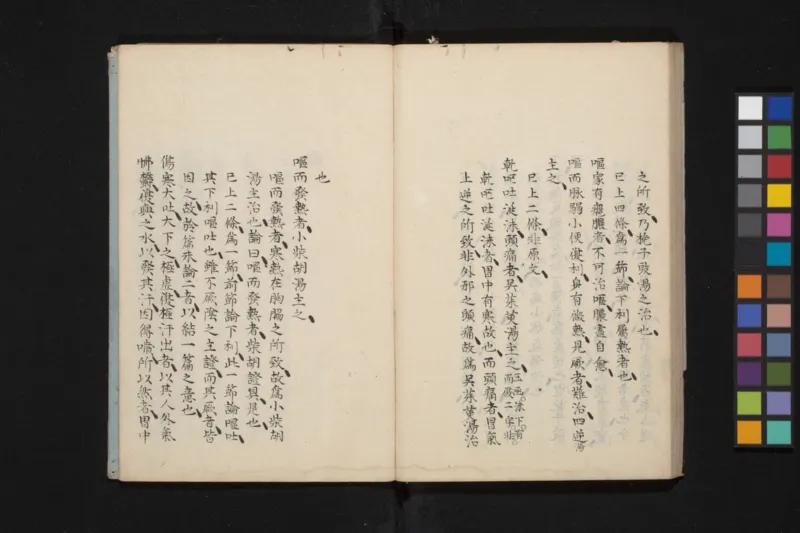 之所致乃梔子豉湯之治也
已上四條爲一節論下利屬熱者也
嘔家有癰膿者不可治嘔膿盡自愈
嘔而脉弱小便復利身有微熱見厥者難治四逆湯
主之
已上二條非原文
乾嘔吐涎沫頭痛者吳茱萸湯主之
乾嘔吐涎沫者胃中有寒故也而頭痛者胃氣
上逆之所致非外邪之頭痛故爲吳茱萸湯治
也
嘔而發熱者小柴胡湯主之
嘔而發熱者寒熱在胸脇之所致故爲小柴胡
湯主治也論曰嘔而發熱者柴胡證具是也
已上二條爲一節前節論下利此一節論嘔吐
其下利嘔吐也雖不厥陰之主證而其厥者皆
因之故於篇末論二者以結一篇之意也
傷寒大吐大下之極虛復極汗出者以其人外氣
怫鬱復與之水以發其汗因得噦所以然者胃中